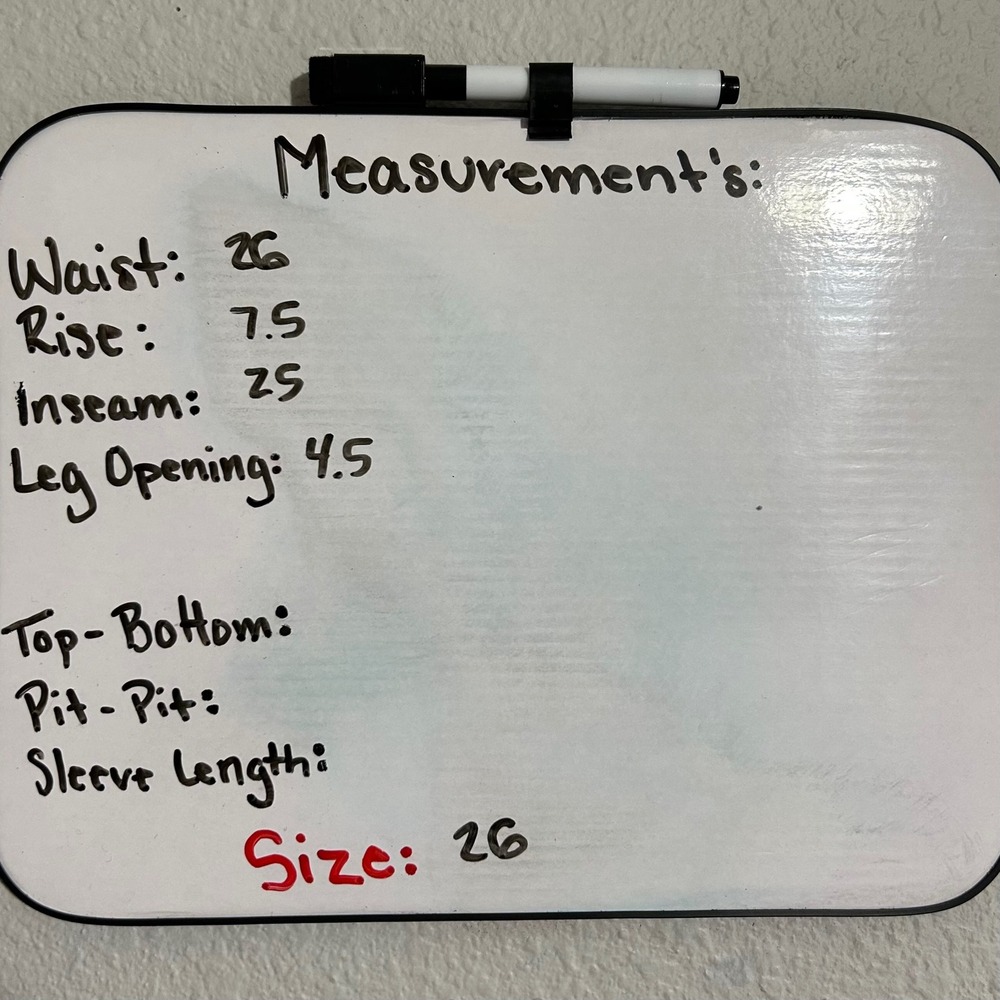 Measurement's:
Waist: 26
Rise: 7.5
Inseam: 25
Leg Opening: 4.5
Top-Bottom:
Pit-Pit:
Sleeve Length:
Size: 26